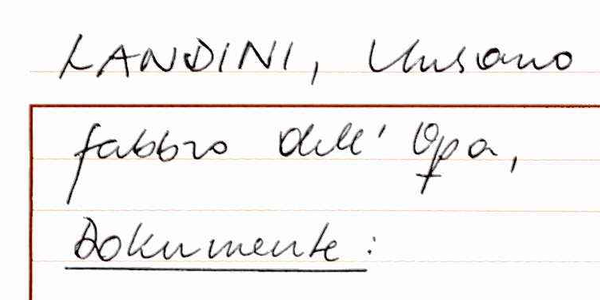 LANDINI, Ansano
fabbro dell' Opa,
Dokumente: